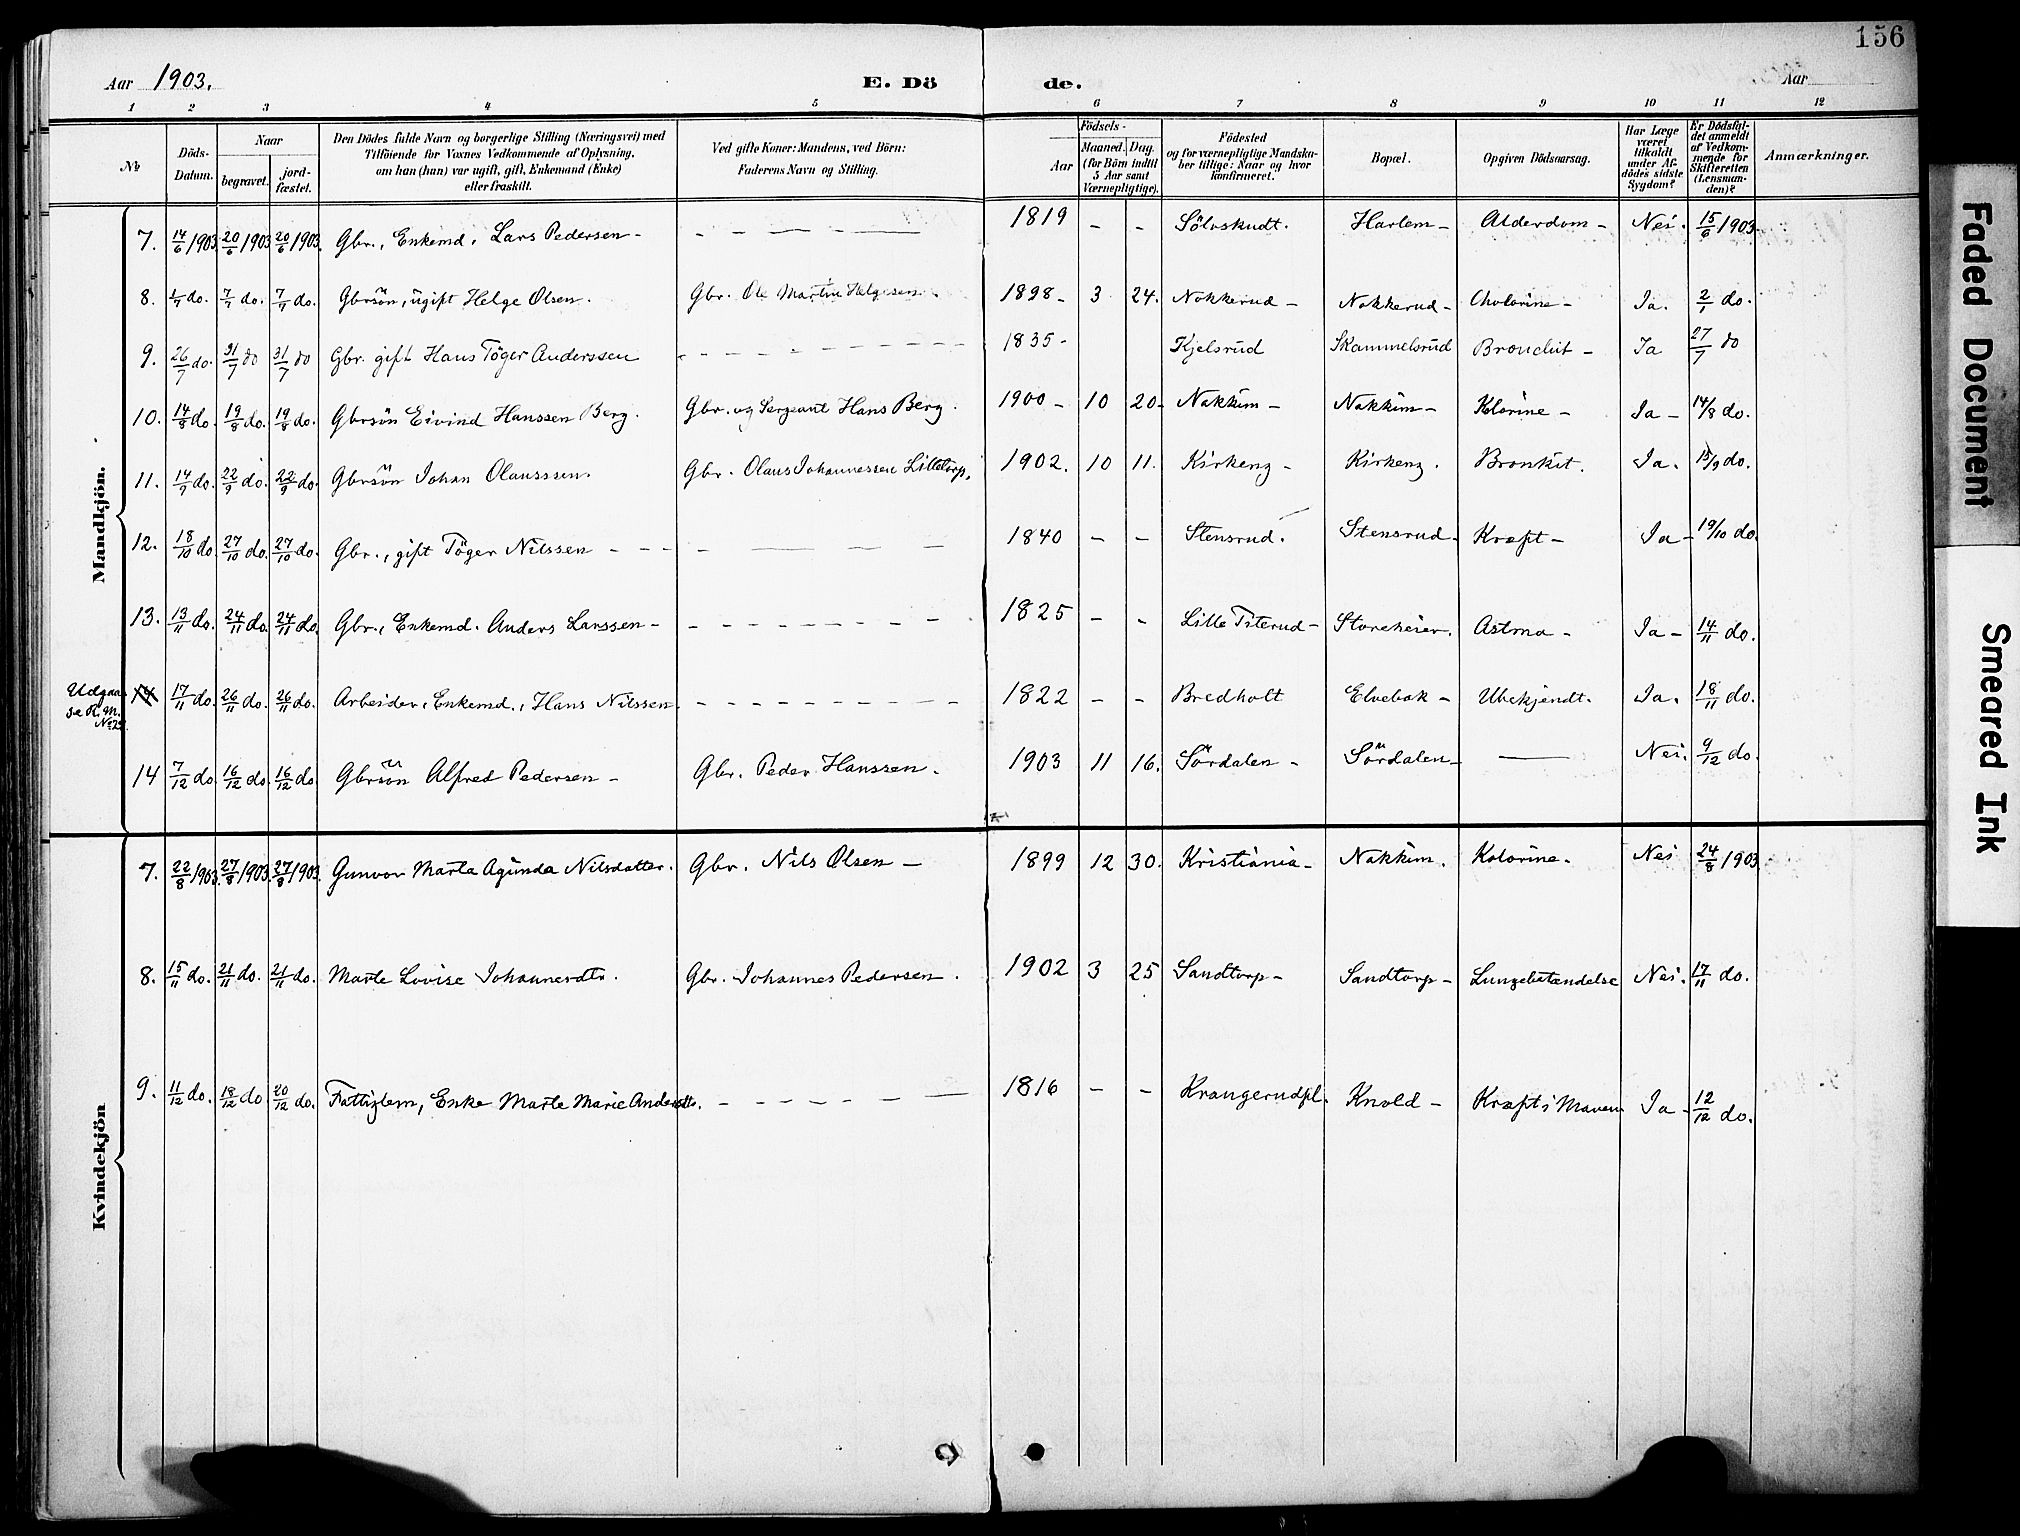 156
Aar 1903. E. Dö de. Aar
1 2 3 4 5 6 7 8 9 10 11 12
№ Döds-Datum. Naar begravet. jord-fæstet. Den Dödes fulde Navn og borgerlige Stilling (Næringsvei) med Tilföiende for Voxnes Vedkommende af Oplysning, om han (hun) var ugift, gift, Enkemand (Enke) eller fraskilt. Ved gifte Koner: Mandens, ved Börn: Faderens Navn og Stilling. Födsels- Aar Maaned. Dag. (for Börn indtil 5 Aar samt Værnepligtige). Födested og for værnepligtige Mandska-ber tillige: Naar og hvor konfirmeret. Bopæl. Opgiven Dödsaarsag. Har Læge været tilkaldt under Af-dödes sidste Sygdom? Er Dödsfal-det anmeldt af Vedkom-mende for Skifteretten (Lensman-den)? Anmærkninger.
Mandkjön.
7. 14/6 1903 20/6 1903 20/6 1903. Gbr., Enkemd. Lars Pedersen - - - - - 1819 - - Sölvskudt. Harlem - Alderdom - Nei. 15/6 1903.
8. 1/7 do. 7/7 do. 7/7 do. Gbrsön, ugift Helge Olsen. Gbr. Ole Martin Helgesen. 1898 - 3 24. Nokkerud - Nokkerud - Cholorine - Ja. 2/7 do.
9. 26/7 do. 31/7 do 31/7 do Gbr. gift Hans Töger Anderssen - - - - - 1835 - Kjelsrud Skammelsrud Bronchit - Ja 27/7 do
10. 14/8 do. 19/8 do. 19/8 do. Gbrsön Eivind Hanssen Berg. Gbr. og Sergeant Hans Berg. 1900 - 10 20. Nakkim - Nakkim - Klorine - Ja - 14/8 do.
11. 14/9 do. 22/9 do. 22/9 do. Gbrsön Johan Olausssen. Gbr. Olaus Johannessen Lilletorp. 1902. 10 11. Kirkeng - Kirkeng. Bronkit. Ja. 15/9 do.
12. 18/10 do. 27/10 do. 27/10 do. Gbr., gift Töger Nilssen - - - - - 1840 - - Stensrud. Stensrud - Kræft - Ja - 19/10 do.
13. 13/11 do. 24/11 do. 24/11 do. Gbr., Enkemd. Anders Larssen - - - - - 1825 - - Lille Titerud - Storeheier. Astma - Ja - 14/11 do.
Udgaar se R. M. 14 17/11 do. 26/11 do. 26/11 do. Arbeider, Enkemd., Hans Nilssen. - - - - - 1822 - - Bredholt Elvebak - Ubekjendt. Ja. 18/11 do.
14 7/12 do. 16/12 do. 16/12 do. Gbrsön Alfred Pedersen - Gbr. Peder Hanssen. 1903 11 16. Sördalen - Sördalen - — Nei. 9/12 do.
Kvindekjön
7. 22/8 1903. 27/8 1903. 27/8 1903. Gunvor Marta Agunda Nilsdatter. Gbr. Nils Olsen - 1899 12 30. Kristiania - Nakkim. Kolorine. Nei 24/8 1903
8. 15/11 do. 21/11 do. 21/11 do. Marte Lovise Johannesdtr. Gbr. Johannes Pedersen. 1902 3 25 Sandtorp - Sandtorp - Lungebetændelse Nei. 17/11 do.
9. 11/12 do. 18/12 do 20/12 do. Fattiglem, Enke Marte Marie Andersdtr. - - - - - 1816 - - Krangerudpl. Knold - Kræft i Maven Ja - 12/12 do.
Faded Document
Smeared Ink